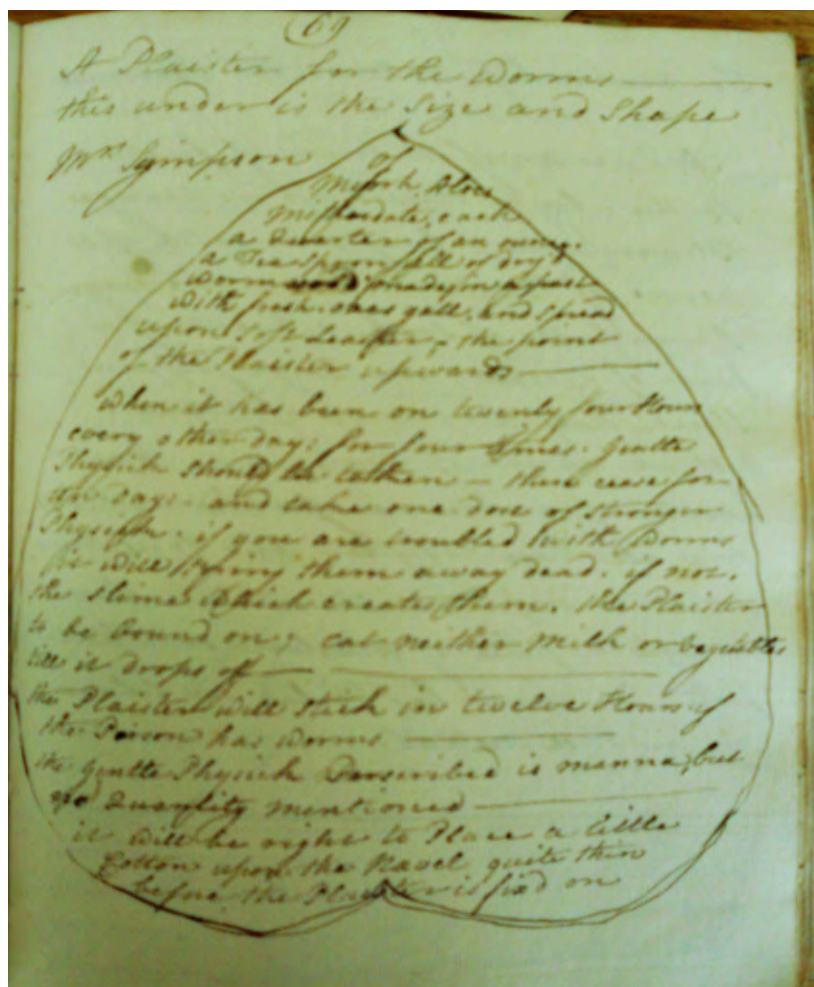 69
A Plaister for the Worms
this under is the Size and Shape
Mrs Sympson
of
Myrrh, Aloes
Mithridate, each
a Quarter of an ounce.
a Tea Spoon full of dry'd
Wormwood made in a past
with fresh oxes gall, and spread
upon soft Leather, the point
of the Plaister upwards
when it has been on twenty four Hours
every other day: for four times. gentle
Physick should be taken - then cease for
days. and take one dose of stronger
Physick. if you are troubled with Worms
it will bring them away dead. if not.
the slime which creates them. the Plaister
to be bound on; eat neither Milk or Vegitables
till it drops off
the Plaister will stick in twelve Hours if
the Person has worms
the gentle Physick Perscribed is manna, but
no Quantity mentioned
it will be right to Place a little
Cotton upon the Navel quite thin
before the Plaister is fixd on